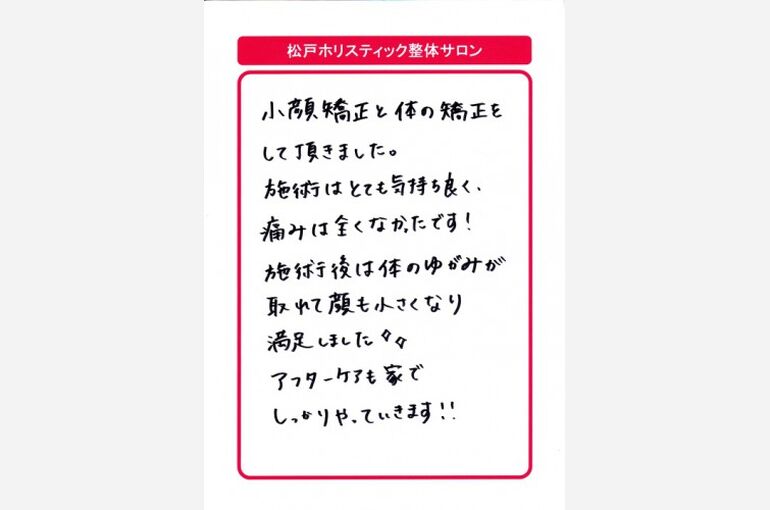 松戸ホリスティック整体サロン
小顔矯正と体の矯正を
して頂きました。
施術はとても気持ち良く、
痛みは全くなかったです!
施術後は体のゆがみが
取れて顔も小さくなり
満足しました
アフターケアも家で
しっかりやっていきます!!